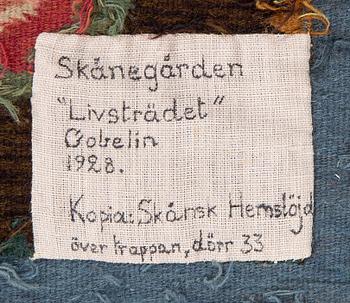 Skånegården
"Livsträdet"
Gobelin
1928.
Kopia: Skånsk Hemslöjd
över trappan, dörr 33